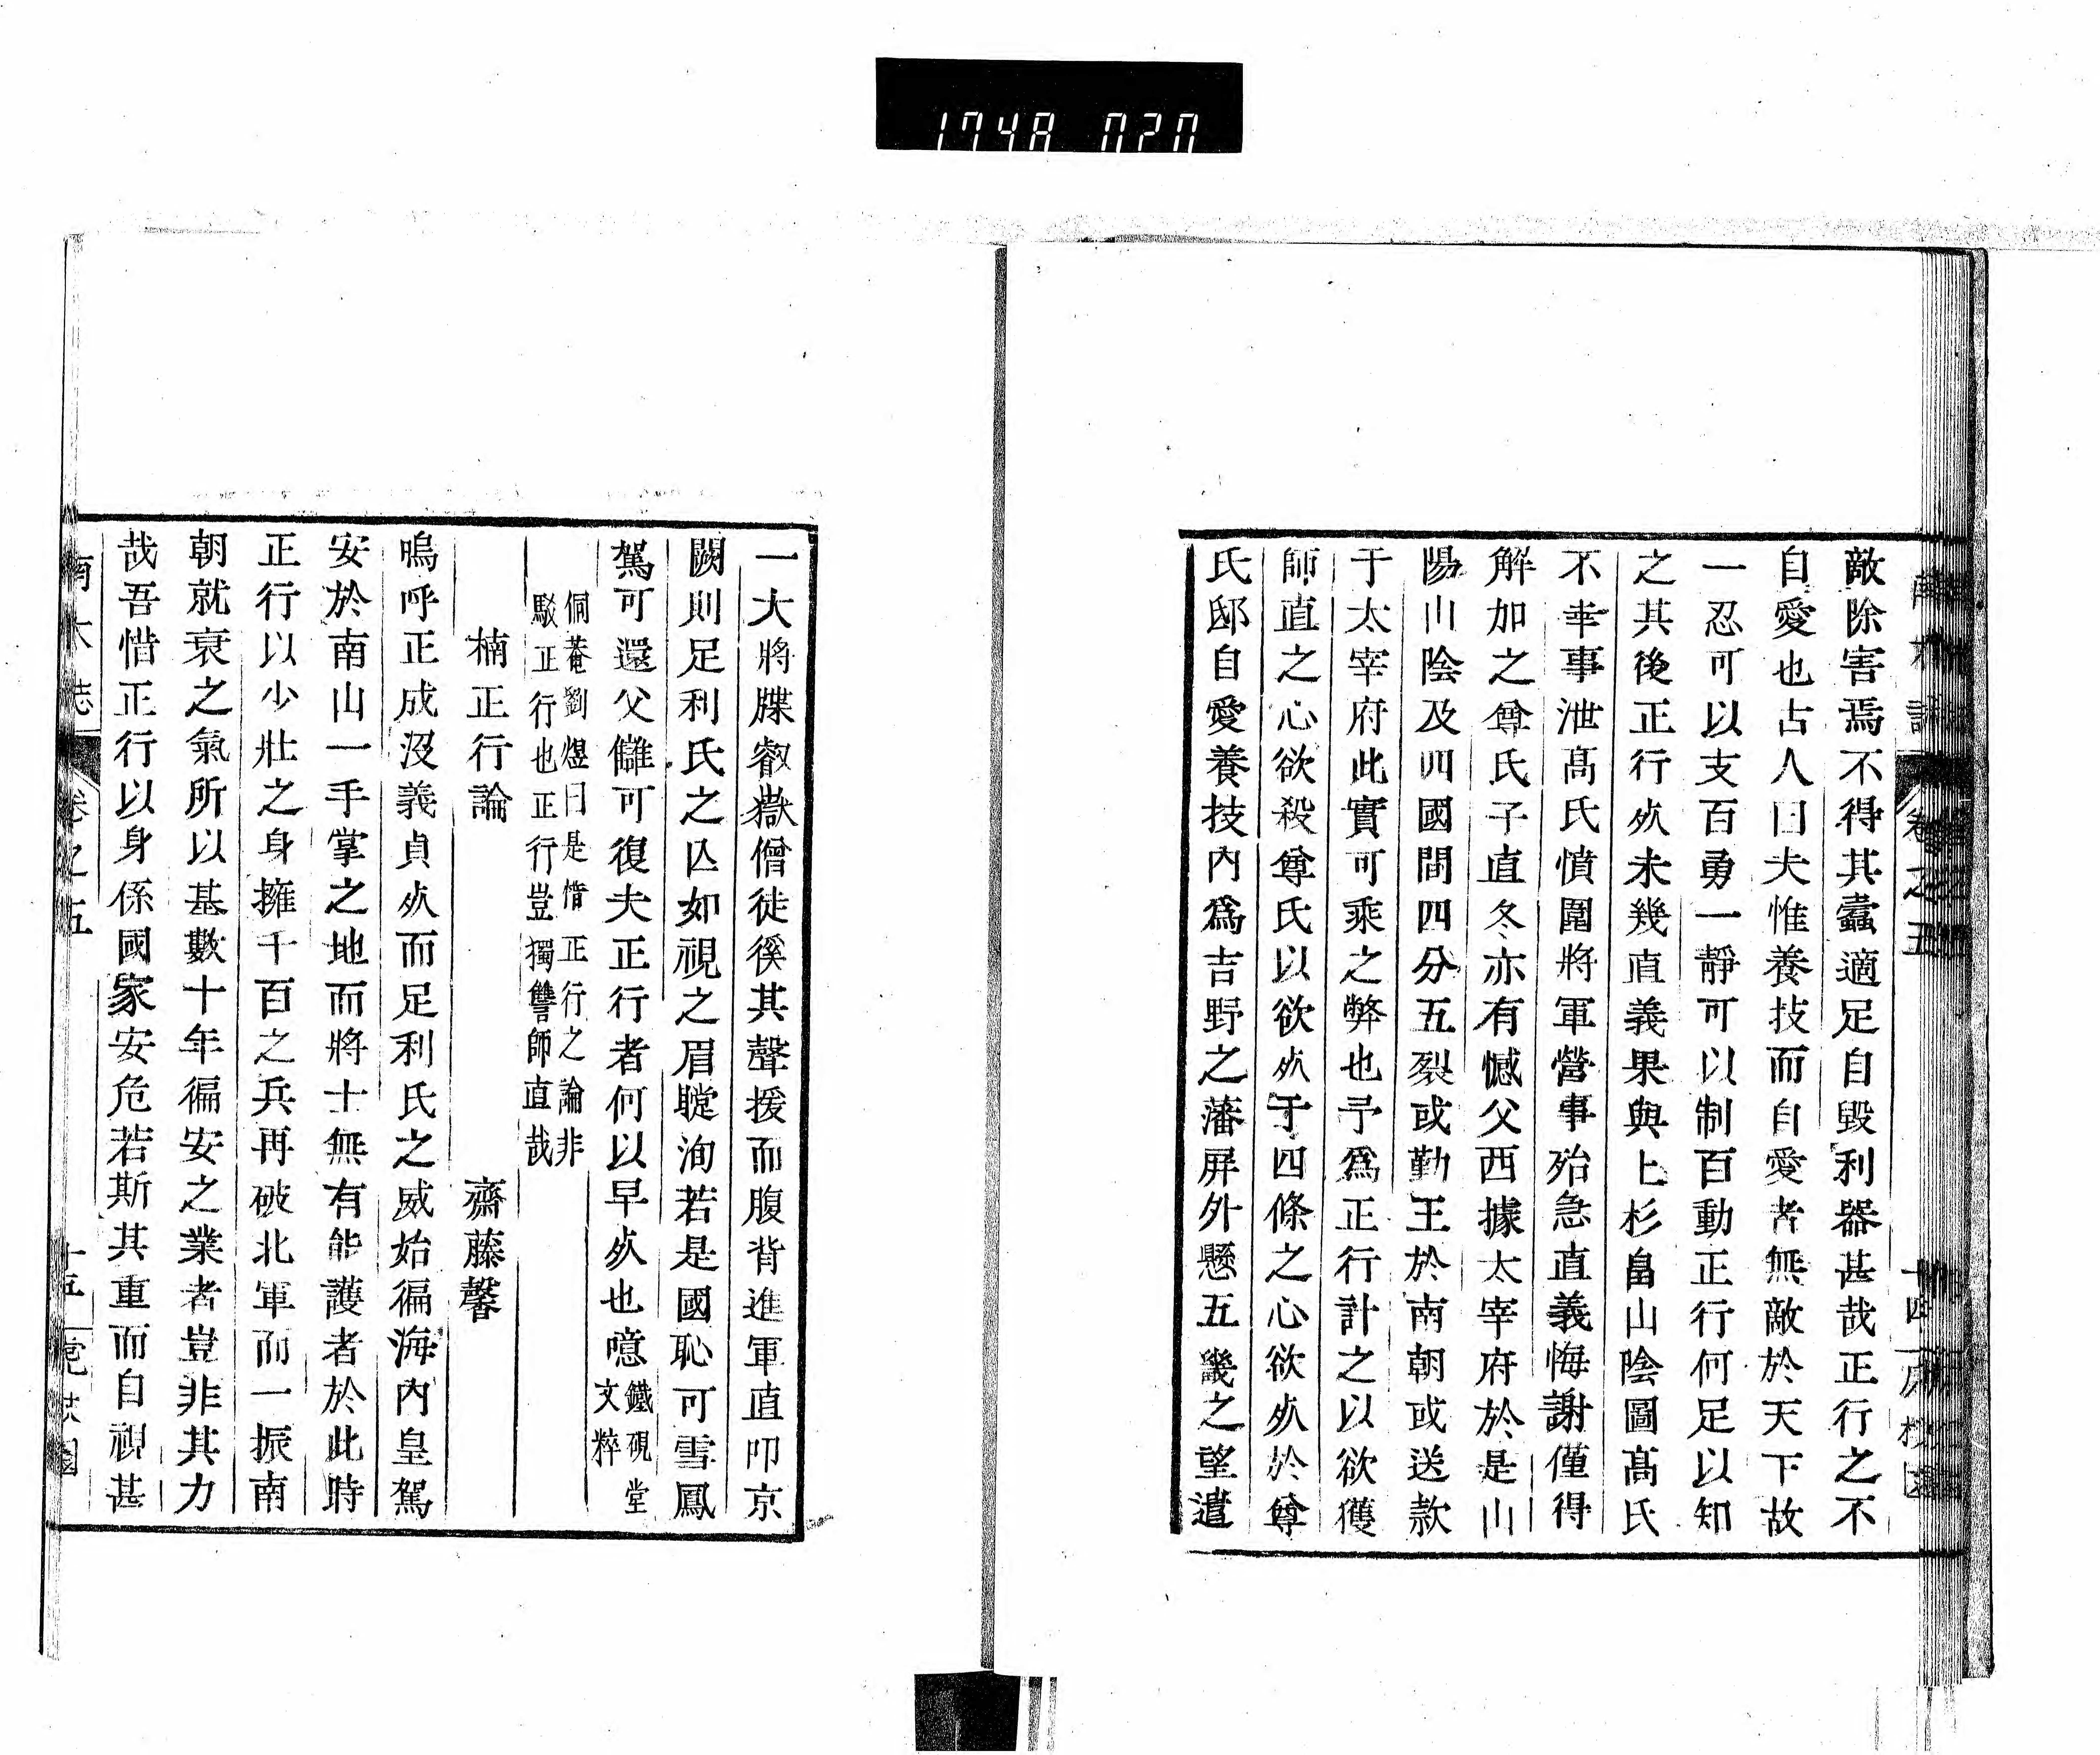 敵除害焉不得其蠹適足自毀利器甚哉正行之不
自愛也古人曰夫惟養技而自愛者無敵於天下故
一忍可以支百勇一靜可以制百動正行何足以知
之其後正行㱙未幾直義果與上杉畠山陰圖髙氏
不幸事泄髙氏憤圍將軍營事殆急直義悔謝僅得
解加之尊氏子直冬亦有憾父西據太宰府於是山
陽山陰及四國間四分五裂或勤王於南朝或送款
于太宰府此實可乘之弊也予爲正行計之以欲獲
師直之心欲殺尊氏以欲㱙于四條之心欲㱙於尊
氏邸自愛養技內爲吉野之藩屏外懸五畿之望遣
一大將牒叡嶽僧徒徯其聲援而腹背進軍直叩京
闕則足利氏之亾如視之眉睫洵若是國恥可雪鳳
駕可還父讎可復夫正行者何以早㱙也噫鐵硯堂
文粹
侗菴劉煜曰是惜正行之論非
駁正行也正行豈獨讐師直哉
楠正行論 齋藤馨
嗚呼正成沒義貞㱙而足利氏之威始徧海內皇駕
安於南山一手掌之地而將士無有能護者於此時
正行以少壯之身擁千百之兵再破北軍而一振南
朝就衰之氣所以基數十年偏安之業者豈非其力
哉吾惜正行以身係國家安危若斯其重而自視甚
卷之五
十五
1748 020